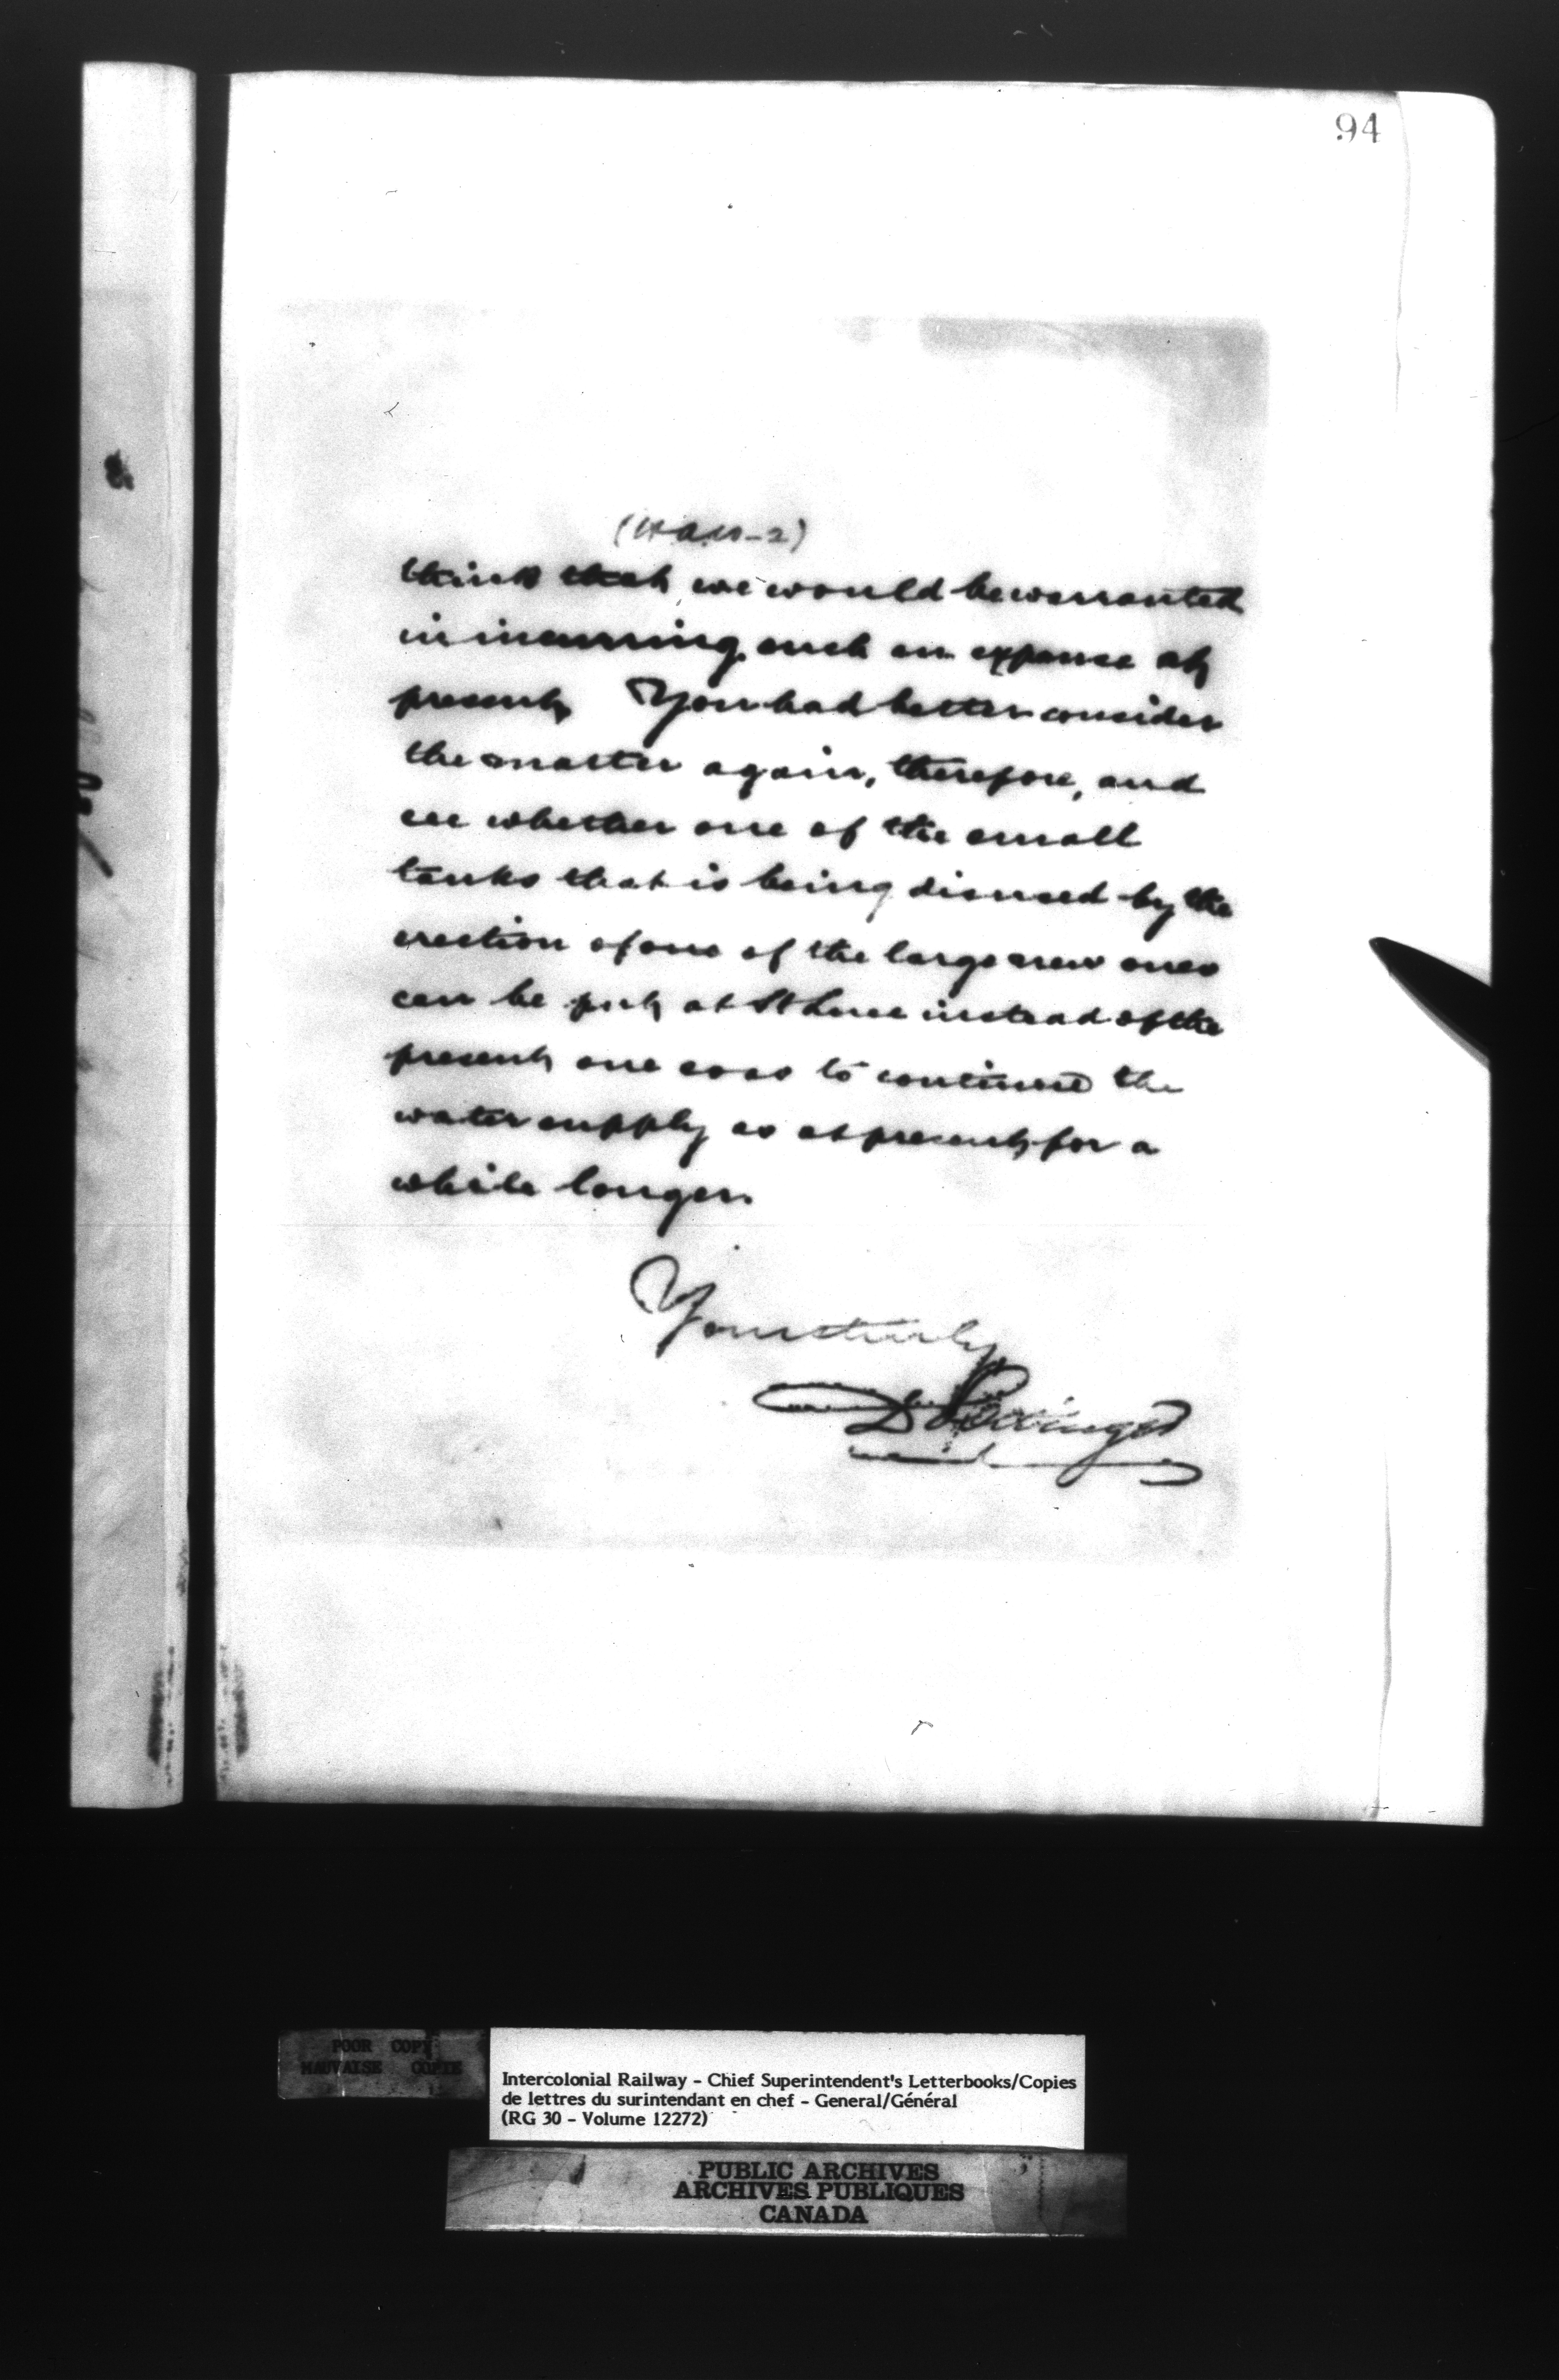 94
think that we would be warranted
in incurring such an expense at
present. You had better consider
the matter again, therefore, and
see whether one of the small
tanks that is being disused by the
erection of one of the large new ones
can be put at St Luce instead of the
present one so as to continue the
water supply as at present for a
while longer.
Yours truly
D Pottinger
POOR COPY
MAUVAISE COPIE
Intercolonial Railway - Chief Superintendent's Letterbooks/Copies
de lettres du surintendant en chef - General/Général
(RG 30 - Volume 12272)
PUBLIC ARCHIVES
ARCHIVES PUBLIQUES
CANADA